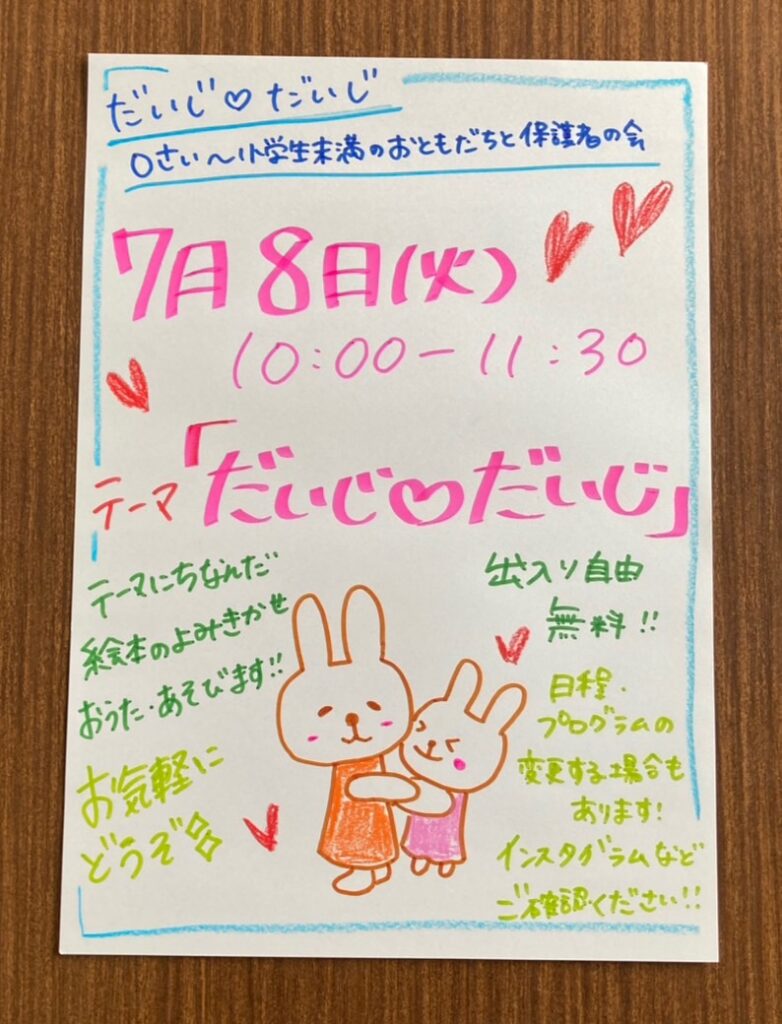 だいじ♡だいじ
0さい〜小学生未満のおともだちと保護者の会
7月8日(火)
10:00-11:30
テーマ「だいじ♡だいじ」
テーマにちなんだ
絵本のよみきかせ
おうた・あそびます!!
お気軽に
どうぞ
出入り自由
無料!!
日程・
プログラムの
変更する場合も
あります!
インスタグラムなど
ご確認ください!!